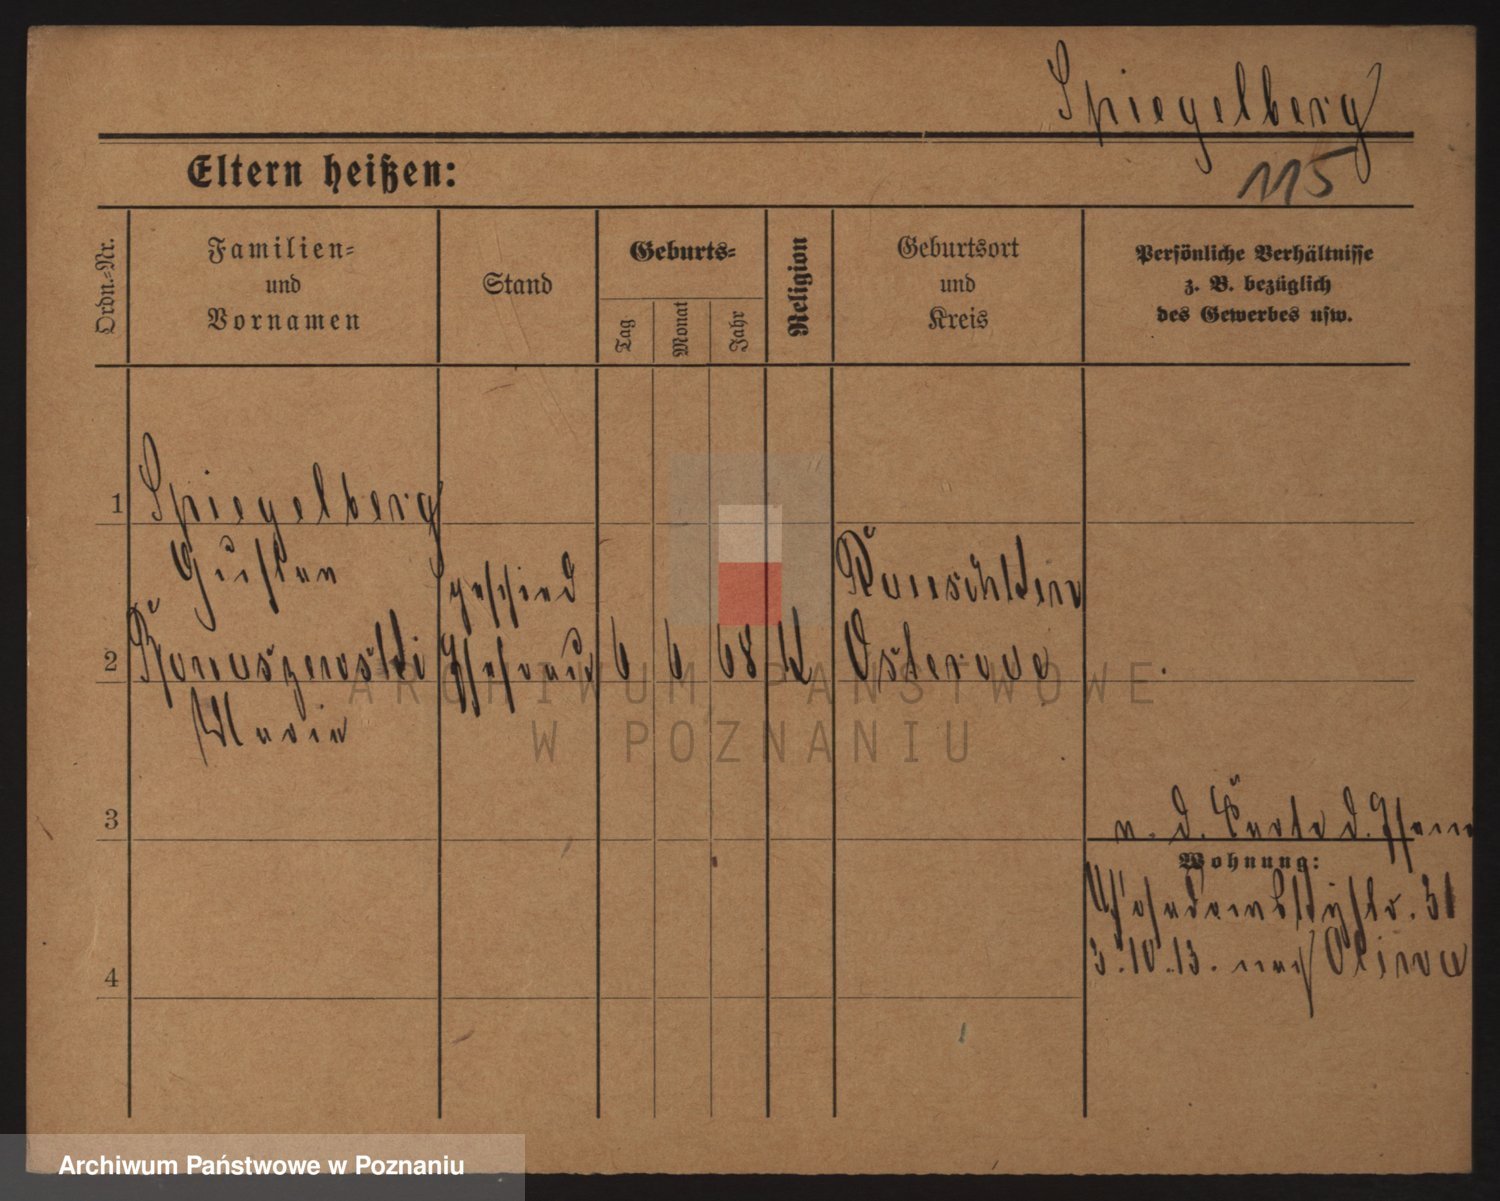 Spiegelberg
Eltern heißen:
115
Ordn.-Nr.
Familien-
und
Vornamen
Stand
Geburts-
Tag
Monat
Jahr
Religion
Geburtsort
und
Kreis
Persönliche Verhältnisse
z. B. bezüglich
des Gewerbes usw.
1
Spiegelberg
Gustav
geschied
2
Ehefrau
6
6
68
k
Osterode
Maria
3
n. d. Karte d.
Wohnung:
31
4
3.10.13. nach Oliva
ARCHIWUM PAŃSTWOWE
W POZNANIU
Archiwum Państwowe w Poznaniu